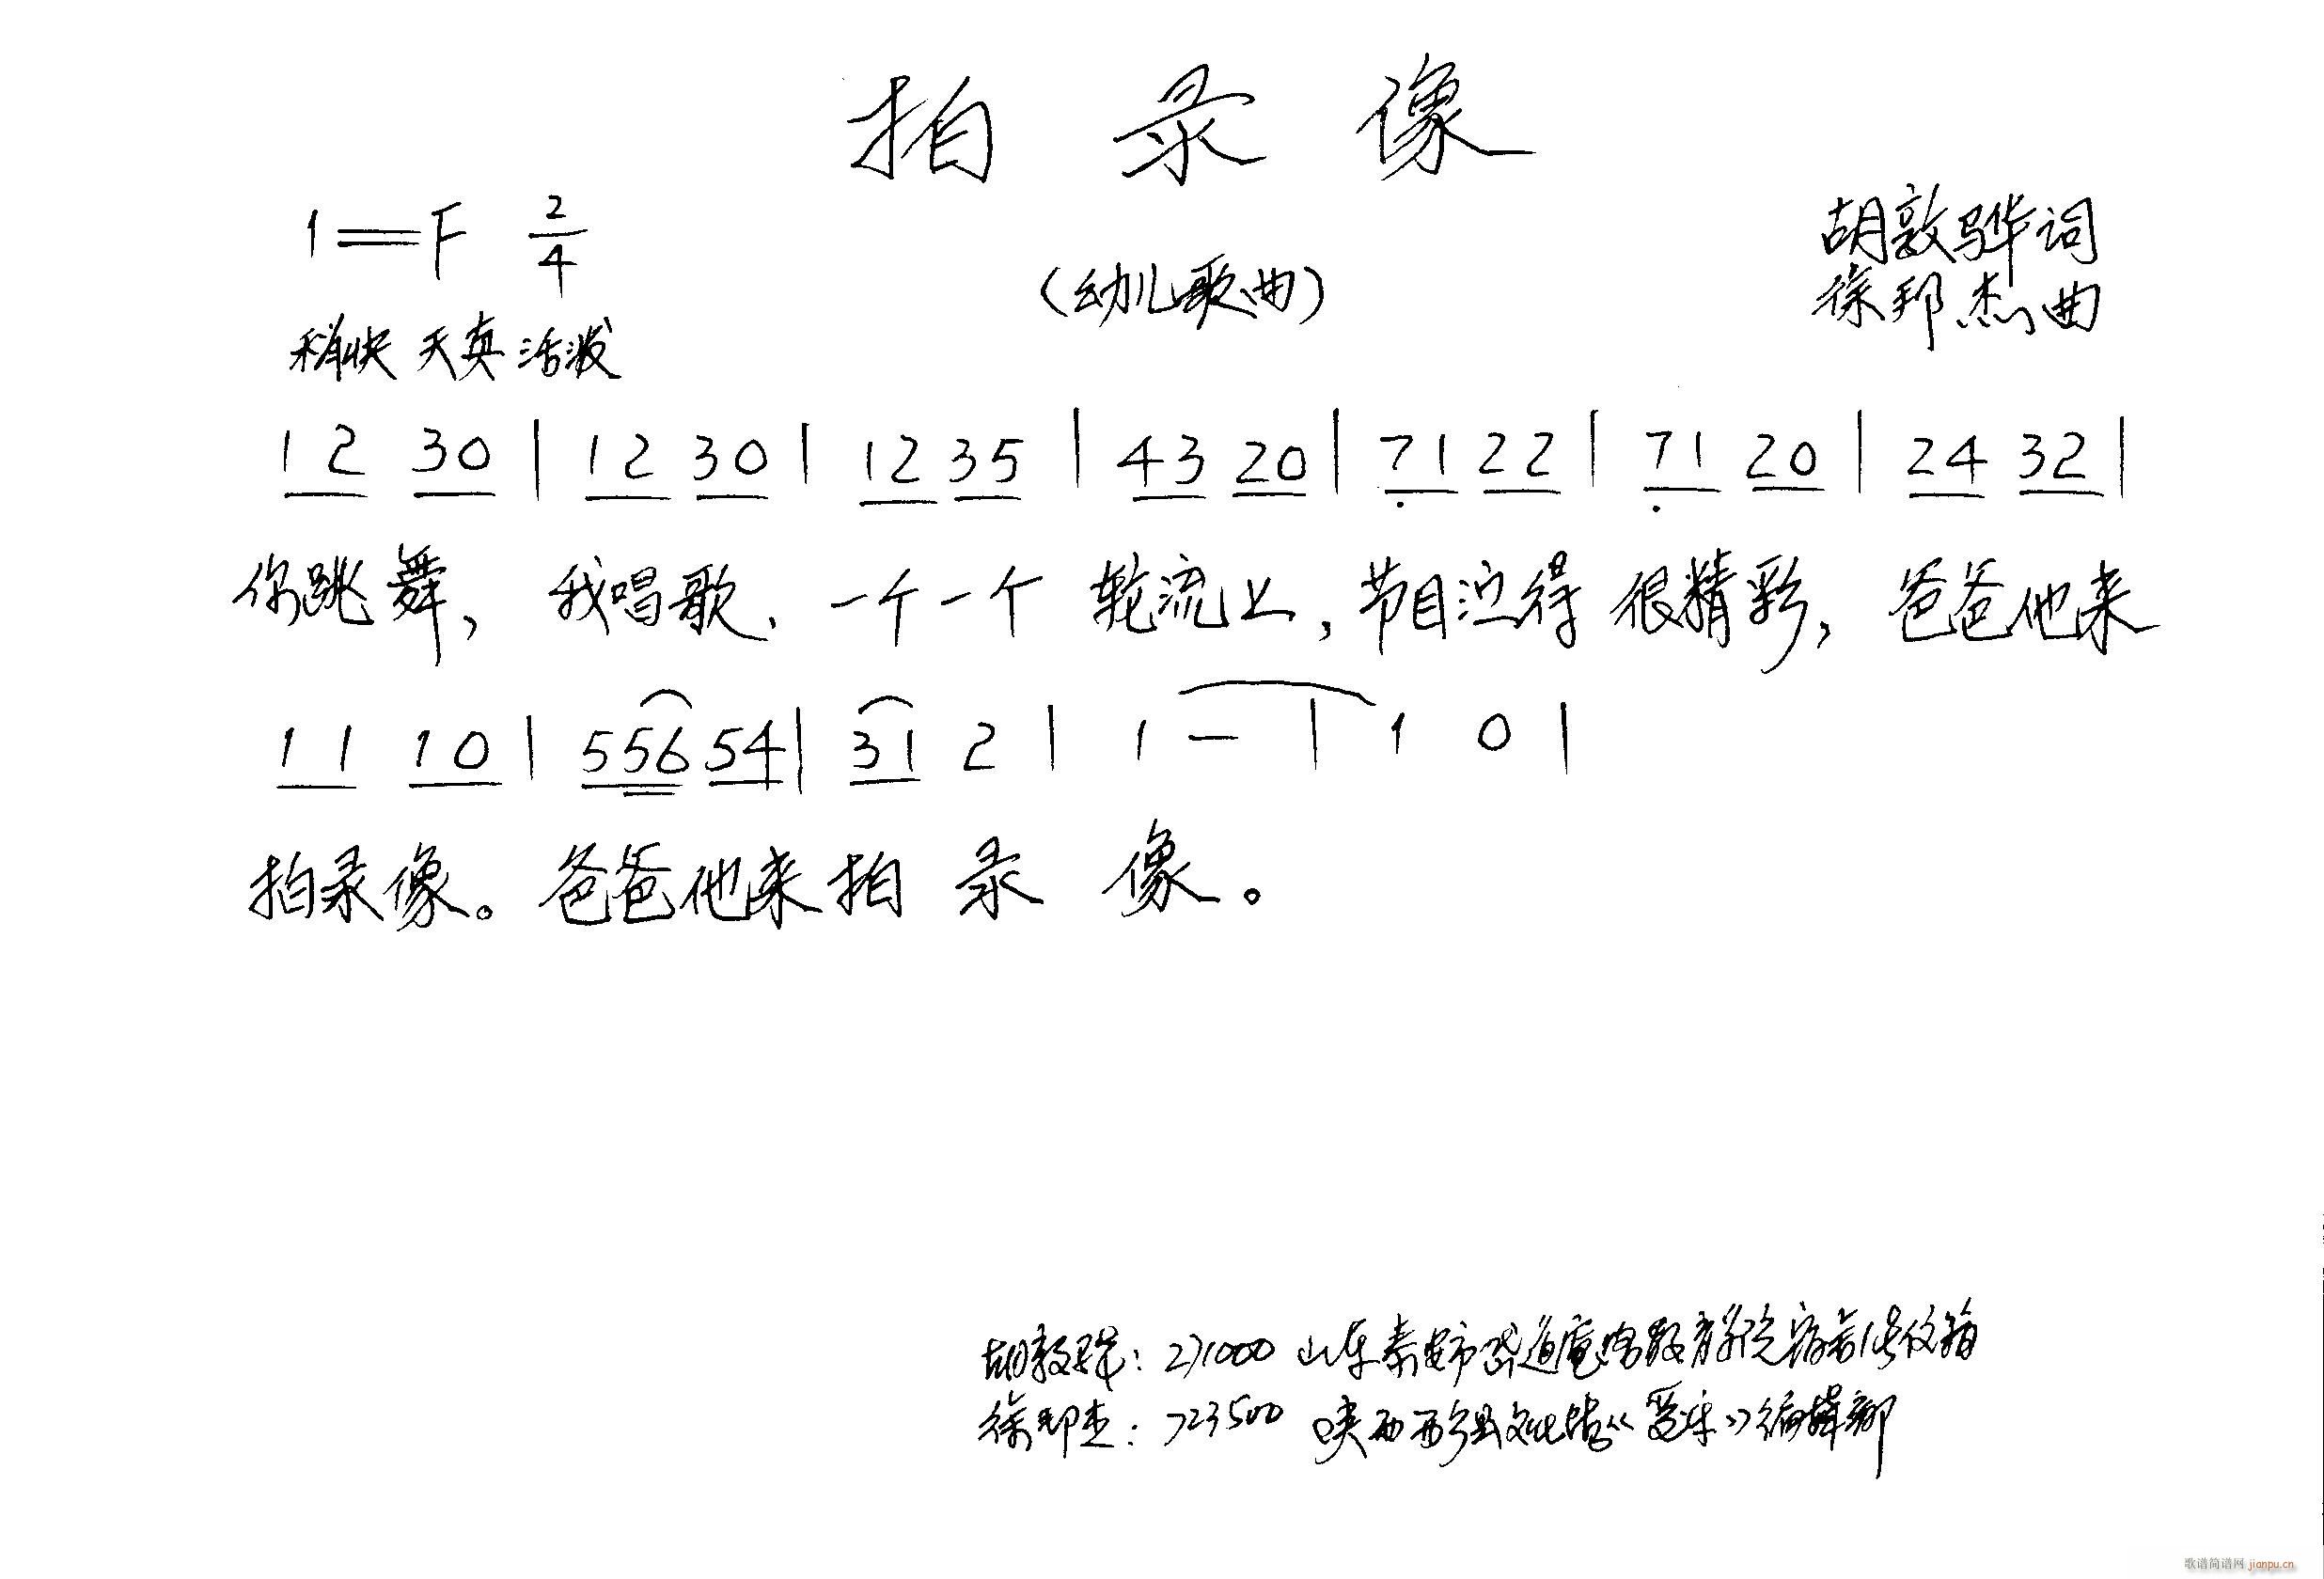 拍录像
1=F 2/4
胡敦骅词
(幼儿歌曲)
徐邦杰曲
稍快 天真 活泼
12 30 | 12 30 | 12 35 | 43 20 | 7̣1 22 | 7̣1 20 | 24 32 |
你跳舞，我唱歌、一个一个 轮流上，节目 得 很精彩，爸爸他来
11 10 | 556 54 | 31 2 | 1 — | 1 0 |
拍录像。爸爸他来拍 录 像。
胡敦骅：271000 山东泰安市岱道庵路教育学院宿舍 信箱
徐邦杰：723500 陕西西乡县文化馆《爱乐》编辑部
歌谱简谱网 jianpu.cn